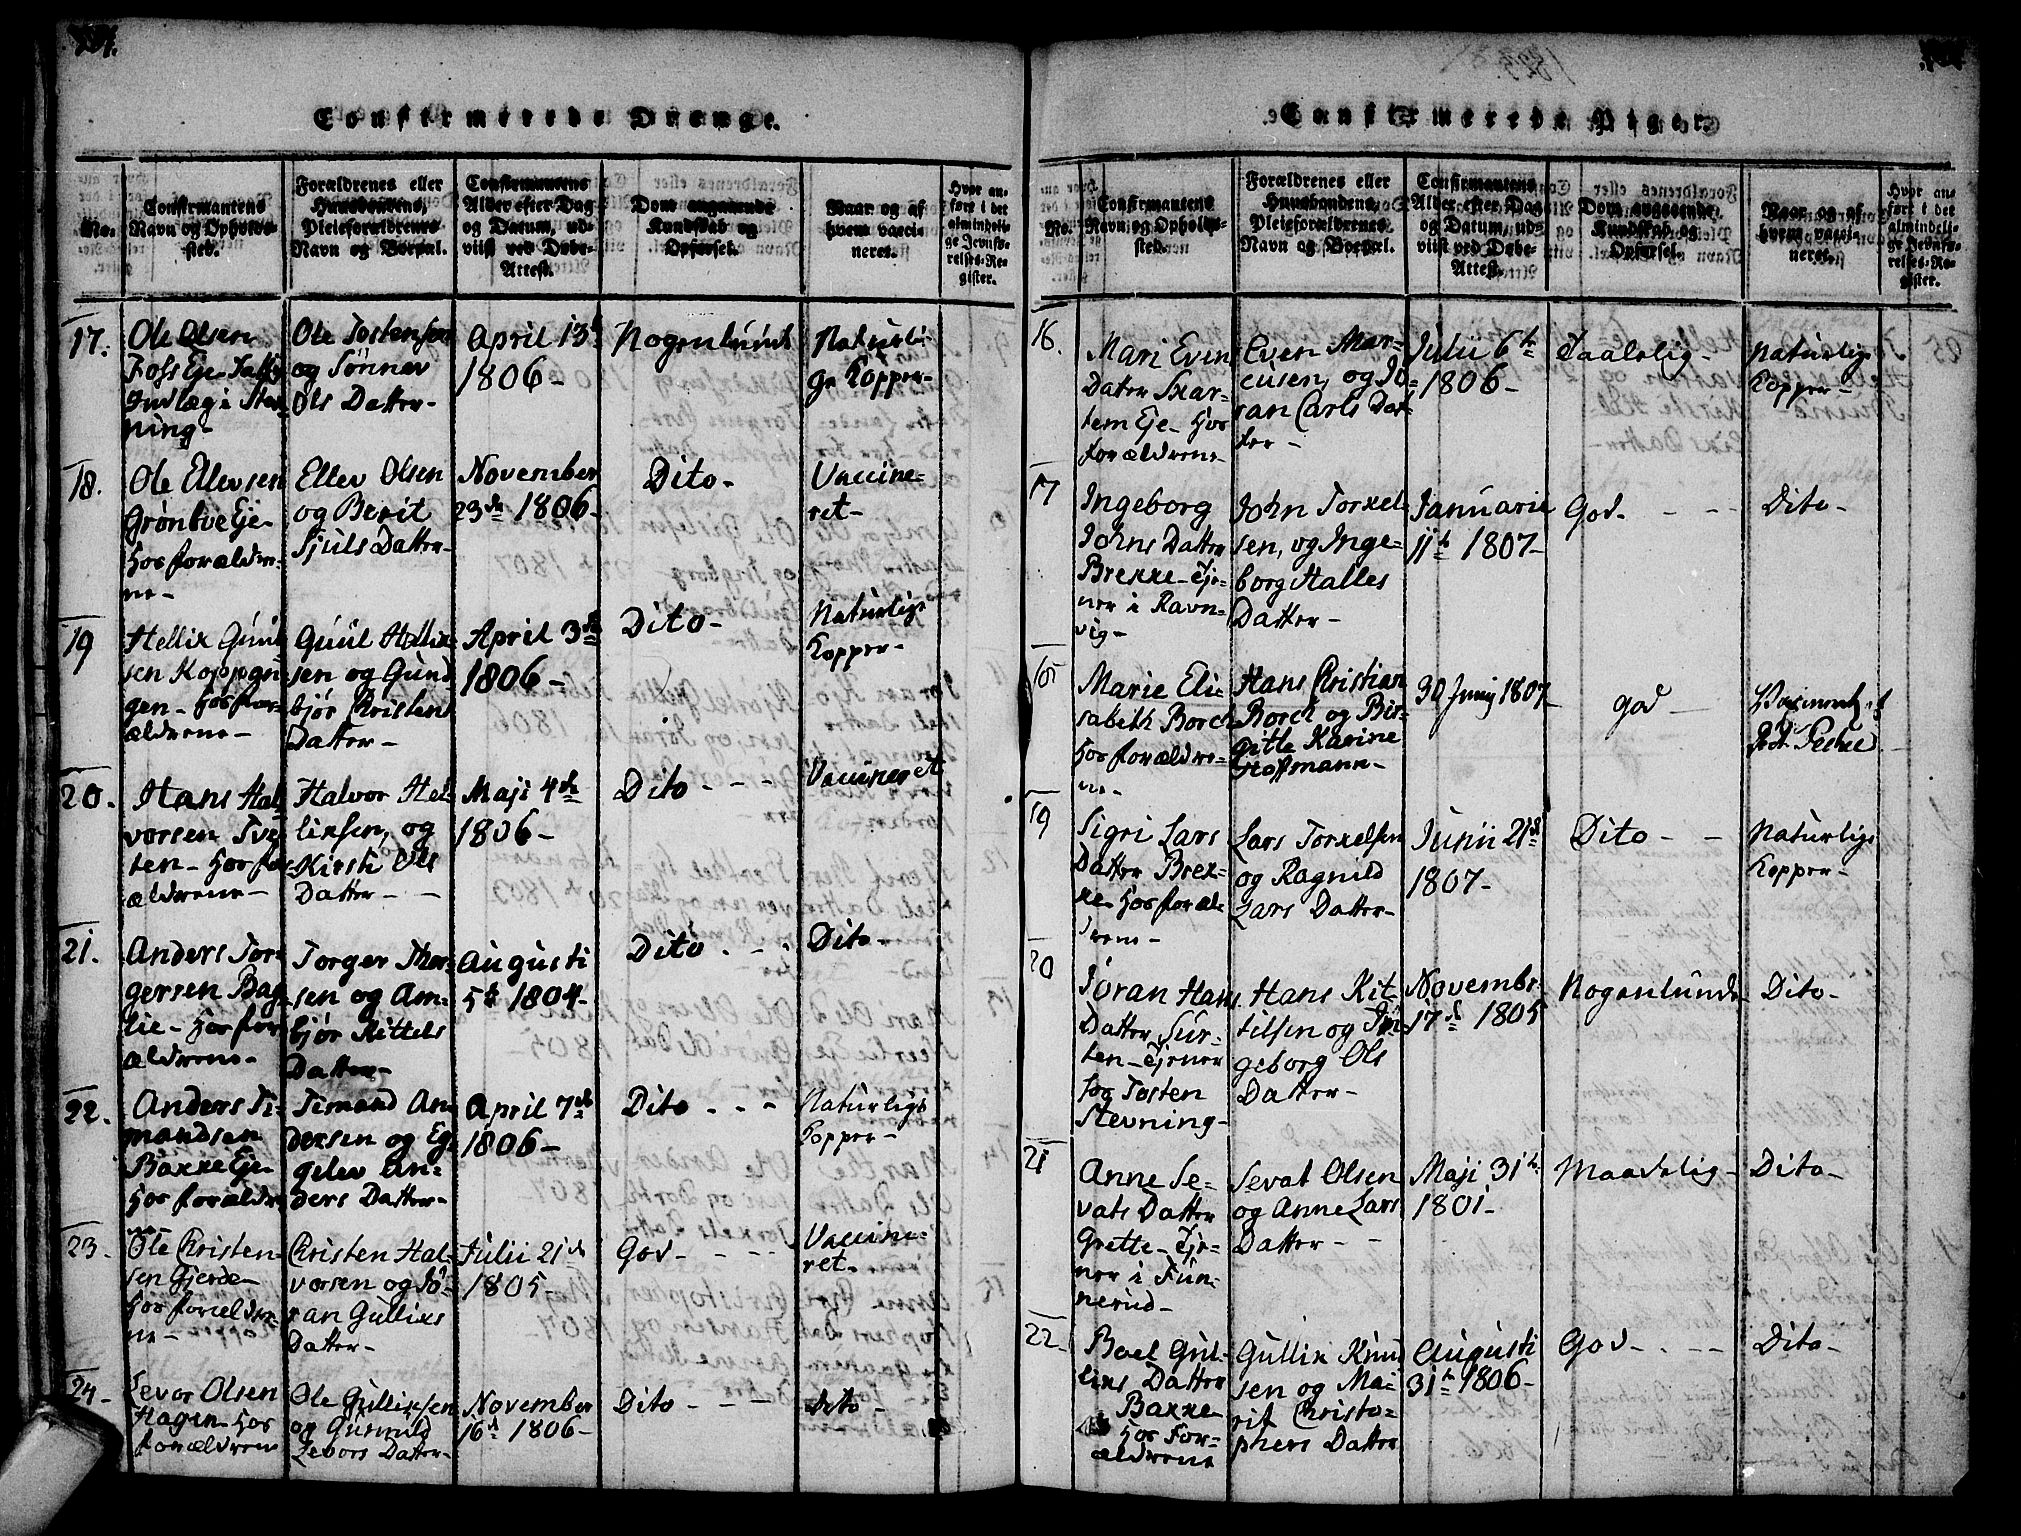 Confirmerede Drenge.
No.
Confirmantens
Navn og Opholds-
sted.
Forældrenes eller
Huusbondens,
Pleieforældrenes
Navn og Bopæl.
Confirmantens
Alder efter Dag
og Datum, ud-
viist ved Døbe-
Attest.
Dom angaaende
Kundskab og
Opførsel.
Naar og af
hvem vacci-
neret.
Hvor an-
ført i det
almindeli-
ge Jevnfø-
relses-Re-
gister.
17.
Ole Olsen
Foss Eje
Indlæg i Stev-
ning-
Ole Tostensen
og Sønnev
Ols Datter-
April 13de
1806-
Nogenlunde
Naturli-
ge Kopper-
18.
Ole Ellevsen
Grøntve Eje-
hos forældre-
ne-
Ellev Olsen
og Berit
Sjuls Datter-
November
23de 1806-
Dito-
Vaccine-
ret-
19
Hellik Guul
sen Koppan-
gen- hos for-
ældrene-
Guul Hellik-
sen og Gund
bjør Kristens
Datter-
April 3de
1806-
Dito-
Naturlige
Kopper-
20.
Hans Hal
vorsen Tve-
ten- hos for
ældrene-
Halvor Hel-
liksen, og
Kirsti Ols
Datter-
Maji 4de
1806-
Dito
Vaccineret
21.
Anders Tor-
gersen Bag
lie- hos for
ældrene-
Torger Thor-
sen og Am-
bjør Kittels
Datter-
Augusti
5te 1804-
Dito
Dito-
22.
Anders Ti-
mandsen
Bakke Eje-
hos forældre
ne-
Timand An
dersen og Eg-
gelev An-
ders Datter-
April 7de
1806-
Dito
Naturlige
Kopper-
23.
Ole Christen-
sen Gjerde-
hos forældre-
ne-
Christen Hal-
vorsen og Jø-
ran Gulliks
Datter-
Julii 21de
1805-
God-
Vaccine-
ret-
24-
Sevor Olsen
Hagen- hos
forældrene
Ole Gulliksen
og Gunnild
Zevors Datter-
November
16de 1806-
Dito
Dito-
Confirmerede Piger.
No.
Confirmantens
Navn og Opholds-
sted.
Forældrenes eller
Huusbondens,
Pleieforældrenes
Navn og Bopæl.
Confirmantens
Alder efter Dag
og Datum, ud-
viist ved Døbe-
Attest.
Dom angaaende
Kundskab og
Opførsel.
Naar og af
hvem vacci-
neret.
Hvor an-
ført i det
almindeli-
ge Jevnfø-
relses-Re-
gister.
16.
Mari Even
Datter Skar-
tem Eje- hos
forældrene
Even Mar-
cusen, og Jø-
ran Carls Dat-
ter-
Julii 6te
1806-
Taalelig-
Naturlige
Kopper-
17
Ingeborg
Johns Datter
Brekke- Tje-
ner i Ravn-
vig-
John Torkel-
sen, og Inge-
borg Halles
Datter-
Januarii
11te 1807-
God-
Dito-
Marie Eli-
sabeth Borch
hos forældre-
ne-
Hans Christian
Borch og Bir-
gitte Karine
Hoffmann-
30 Junij 1807-
god
19
Sigri Lars
Datter Brek-
ke- hos foræl-
drene-
Lars Torkelsen
og Ragnild
Lars Datter-
Junii 21de
1807-
Dito
Naturlige
Kopper-
20
Jøran Hans
Datter Sur-
ten- Tjener
hos Tosten
Stevning-
Hans Kit-
tilsen og In-
geborg Ols
Datter-
Novembr.
17de 1805
Nogenlunde
Dito-
21
Anne Se-
vats Datter
Grette- Tje-
ner i Fun-
nerud-
Sevat Olsen
og Anne Lars
Datter-
Maji 31te
1801-
Maadelig-
Dito-
22-
Boel Gul-
liks Datter
Bakke-
hos For-
ældrene
Gullik Knud
sen og Ma-
rit Christo-
phers Datter
Augusti
31te 1806-
God-
Dito-